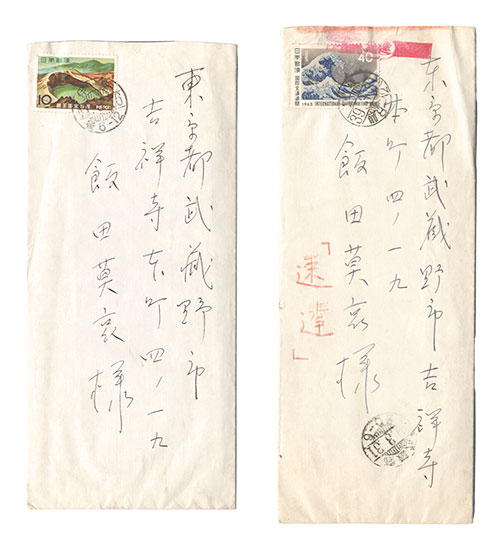 日本郵便
10
東京都武蔵野市
吉祥寺东町四ノ一九
飯田莫哀様
日本郵便
40
国際文通週間
1963 INTERNATIONAL
东京都武蔵野市吉祥寺
本町四ノ一九
飯田莫哀様
「速達」